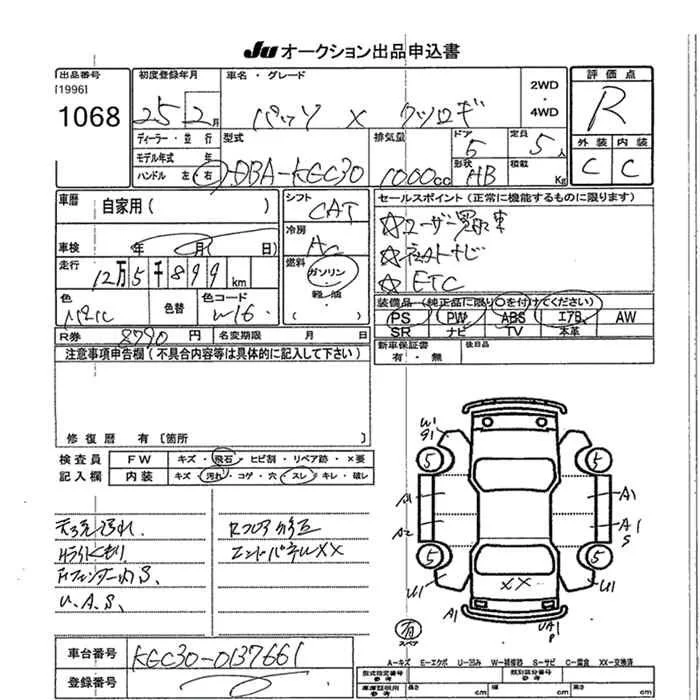 JU オークション出品申込書
出品番号
[1996]
1068
初度登録年月
25年 2月
車名・グレード
パッソ X クツロギ
2WD・4WD
評価点
R
外装 内装
C C
ディーラー・並行
モデル年式 年
ハンドル 左 右
型式
DBA-KGC30
排気量
1000cc
ドア
5
形状
HB
定員
5人
積載
Kg
車歴
自家用( )
車検 年 月 日
走行
12万5千899km
色
色替
色コード
W16
シフト
CAT
冷房
AC
燃料
ガソリン
軽油
セールスポイント(正常に機能するものに限ります)
☆ユーザー買取車
☆ ナビ
☆ ETC
装備品(純正品に限り○を付けてください)
PS PW ABS エアB AW
SR ナビ TV 本革
R券 8790円
名変期限 月 日
新車保証書
有・無
後日品
注意事項申告欄(不具合内容等は具体的に記入して下さい)
修復歴 有[箇所
検査員
記入欄
FW キズ・飛石・ヒビ割・リペア跡・×要
内装 キズ・汚れ・コゲ・穴・スレ・キレ・破レ
汚れ
Rフロア修正
ライトくもり
エンドパネルXX
フェンダー内S、
U、A、S、
W1
g1
5 5
A1 A1
A2 A1
S
5 5
U1 XX U1
A1 UA1
P
有
スペア
A-キズ E-エクボ U-凹み W-補修跡 S-サビ C-腐食 XX-交換済
車台番号
KGC30-0137661
登録番号
型式指定番号
参考
類別区分番号
参考
車庫証明用
参考
長さ cm 幅 cm 高さ cm